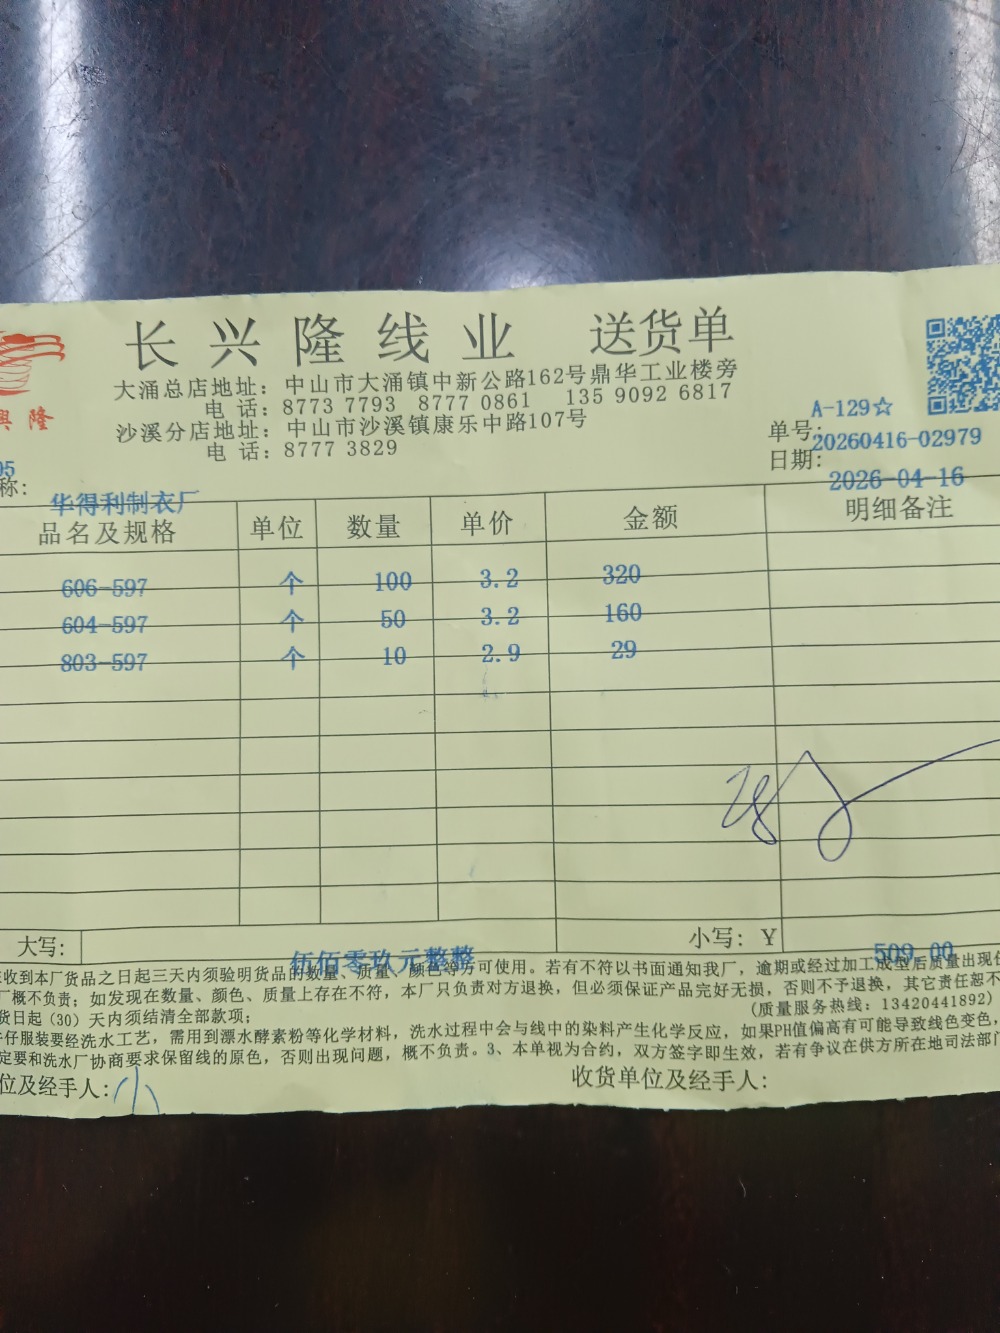 长兴隆线业 送货单
大涌总店地址：中山市大涌镇中新公路162号鼎华工业楼旁
电 话：8773 7793 8777 0861 135 9092 6817
沙溪分店地址：中山市沙溪镇康乐中路107号
电 话：8777 3829
興隆
A-129☆
单号：20260416-02979
日期：2026-04-16
05
称：华得利制衣厂
品名及规格 单位 数量 单价 金额 明细备注
606-597 个 100 3.2 320
604-597 个 50 3.2 160
803-597 个 10 2.9 29
大写： 伍佰零玖元整整 小写：￥ 509.00
收到本厂货品之日起三天内须验明货品的数量、质量、颜色等方可使用。若有不符以书面通知我厂，逾期或经过加工成型后质量出现
厂概不负责；如发现在数量、颜色、质量上存在不符，本厂只负责对方退换，但必须保证产品完好无损，否则不予退换，其它责任恕不
货日起（30）天内须结清全部款项； （质量服务热线：13420441892）
仔服装要经洗水工艺，需用到漂水酵素粉等化学材料，洗水过程中会与线中的染料产生化学反应，如果PH值偏高有可能导致线色变色，
定要和洗水厂协商要求保留线的原色，否则出现问题，概不负责。3、本单视为合约，双方签字即生效，若有争议在供方所在地司法部门
位及经手人：小 收货单位及经手人：